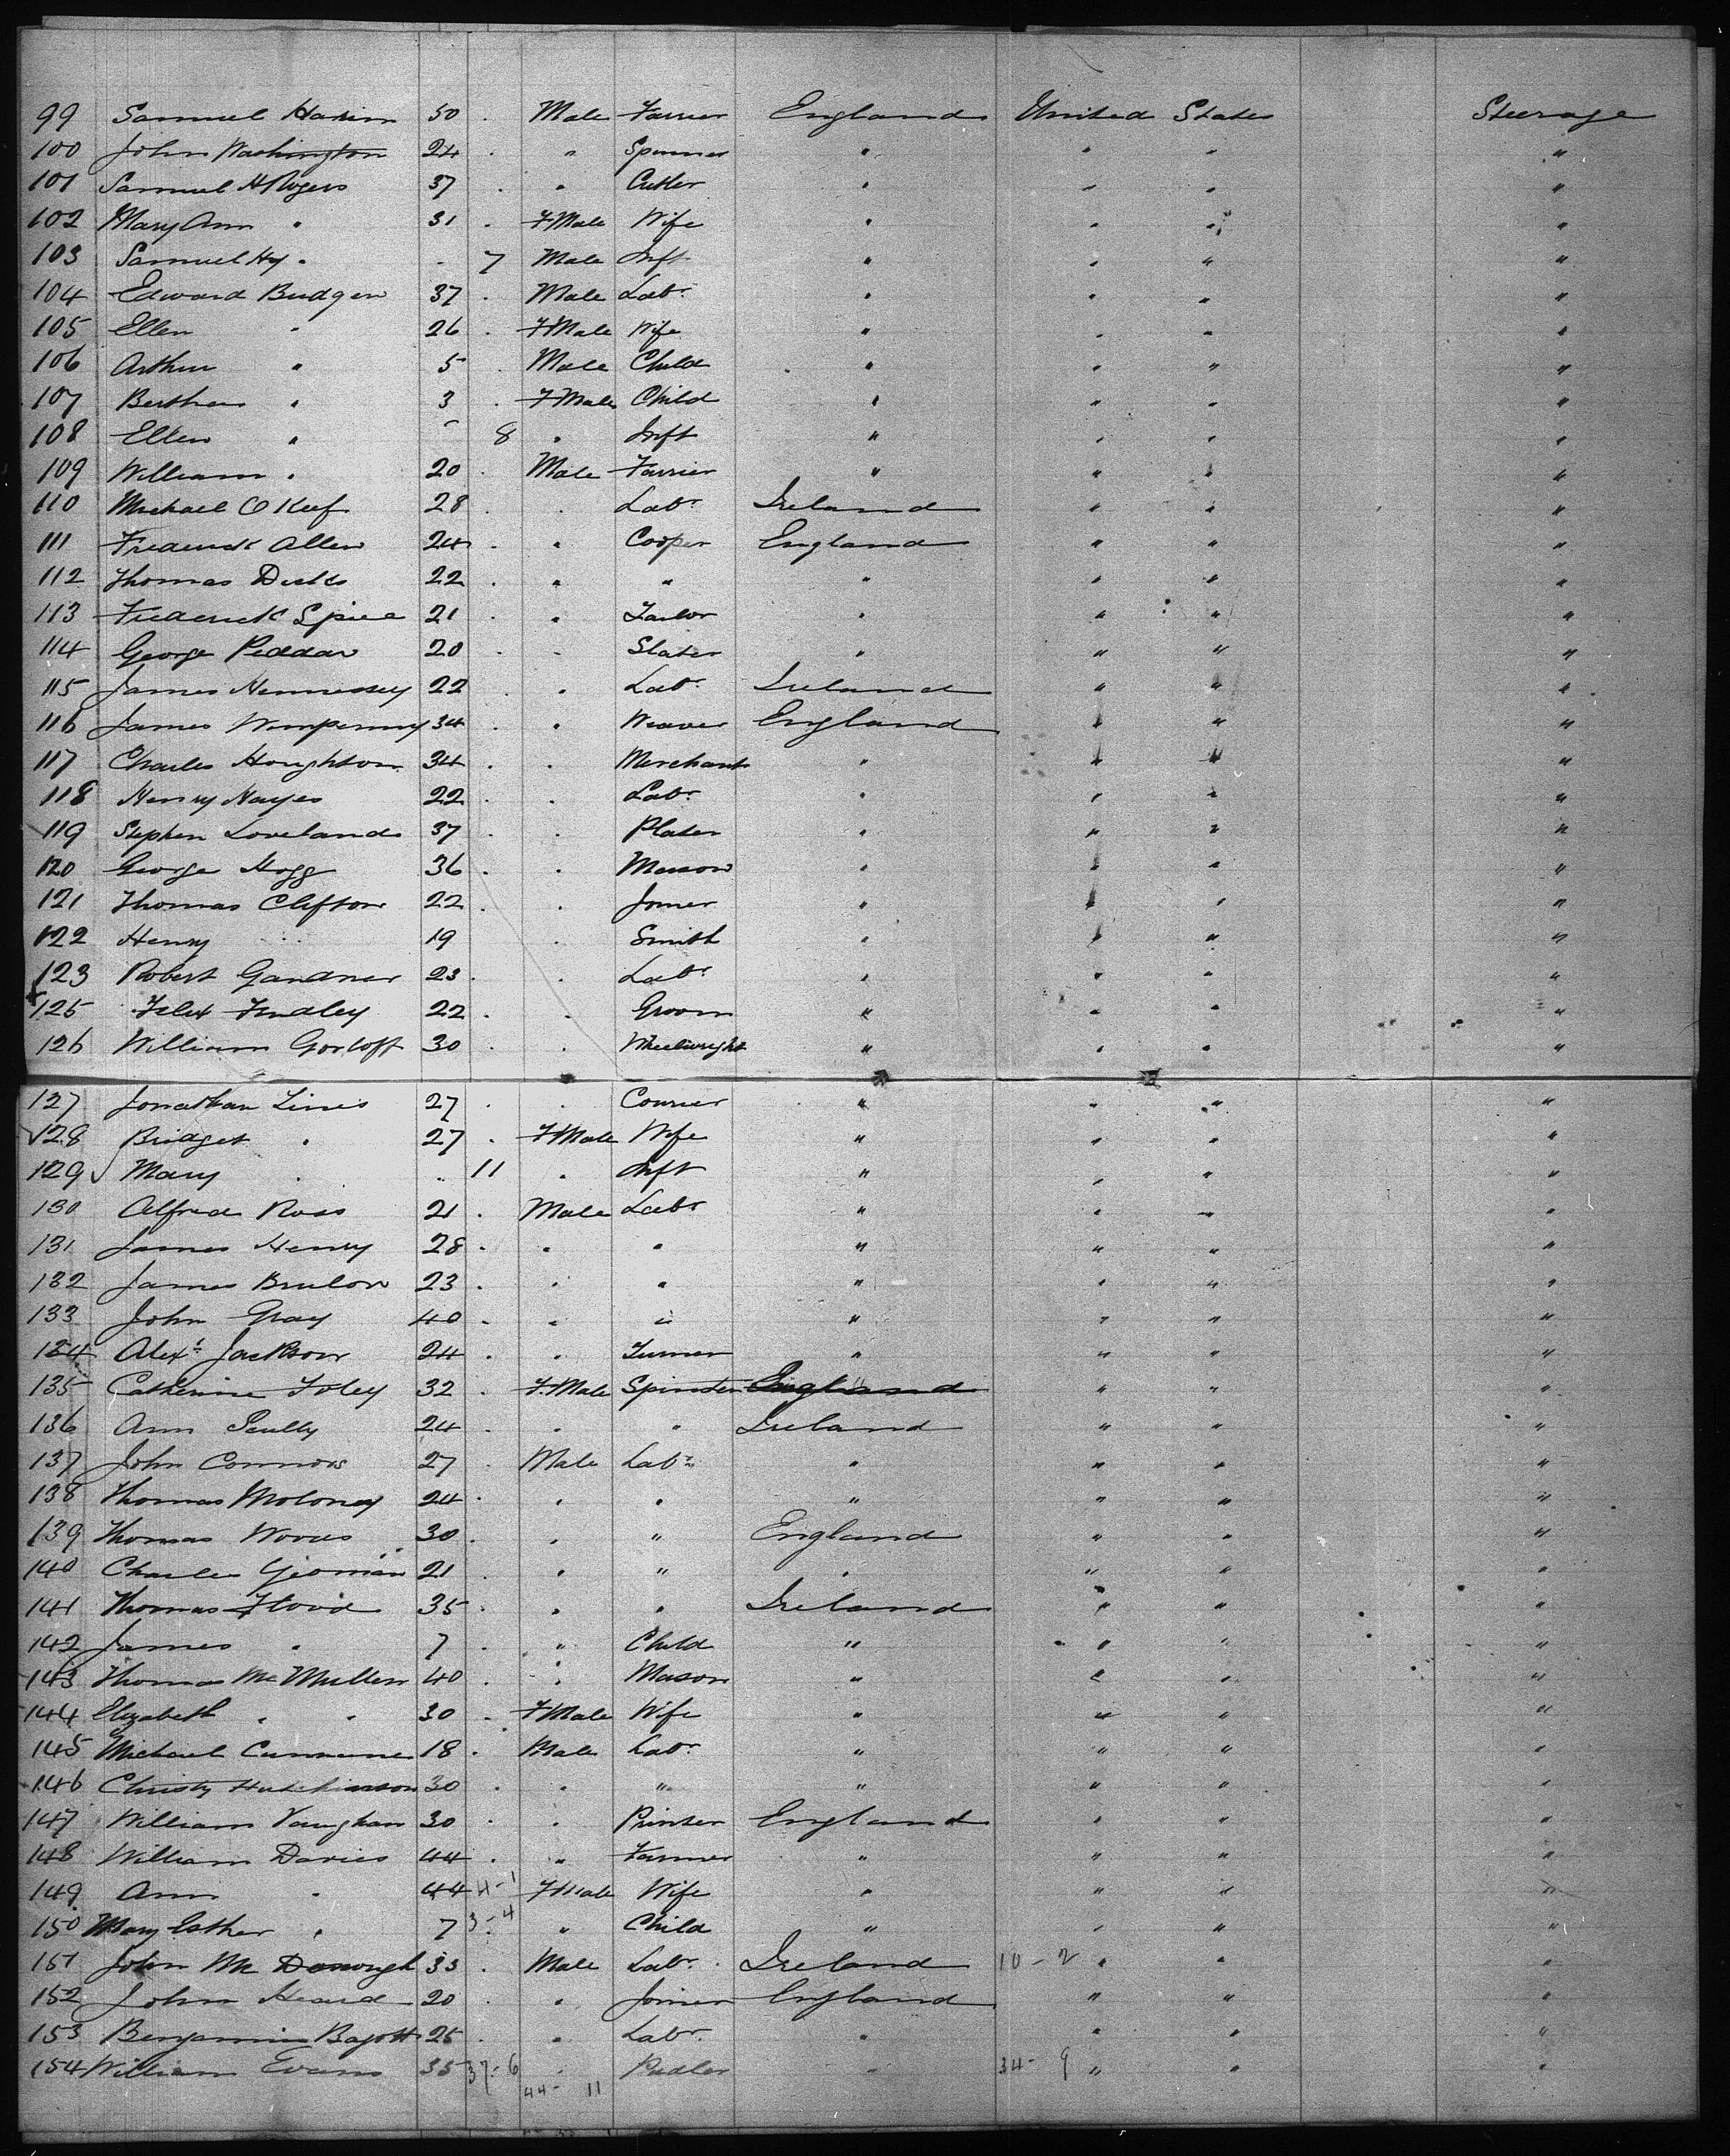 99 Samuel 50 . Male Farrier England United States Steerage
100 John Washington 24 . " Spinner " " " "
101 Samuel H Rogers 37 . " Cutler " " " "
102 Mary Ann " 31 . F Male Wife " " " "
103 Samuel Hy " - 7 Male Inft " " " "
104 Edward Budgen 37 . Male Labr " " " "
105 Ellen " 26 . F Male Wife " " " "
106 Arthur " 5 . Male Child " " " "
107 Bertha " 3 . F Male Child " " " "
108 Ellen " - 8 " Inft " " " "
109 William " 20 . Male Farrier " " " "
110 Michael O Keef 28 . " Labr Ireland " " "
111 Frederick Allen 24 . " Cooper England " " "
112 Thomas 22 . " " " " " "
113 Frederick Spice 21 . " Tailor " " " "
114 George Peddar 20 . " Slater " " " "
115 James Hennessey 22 . " Labr Ireland " " "
116 James Wimpenny 34 . " Weaver England " " "
117 Charles Houghton 34 . " Merchant " " " "
118 Henry Hayes 22 . " Labr " " " "
119 Stephen Loveland 37 . " Plater " " " "
120 George Hogg 36 . " Mason " " " "
121 Thomas Clifton 22 . " Joiner " " " "
122 Henry " 19 " Smith " " " "
123 Robert Gardner 23 . " Labr " " " "
125 Findley 22 . " Groom " " " "
126 William 30 . " Wheelwright " " " "
127 Jonathan Lines 27 . " Courier " " " "
128 Bridget " 27 . F Male Wife " " " "
129 Mary " " 11 " Inft " " " "
130 Alfred Ross 21 . Male Labr " " " "
131 James Henry 28 . " " " " " "
132 James 23 . " " " " " "
133 John Gray 40 . " " " " " "
134 Alexr Jackson 24 . " Turner " " " "
135 Catherine Foley 32 . F. Male Spinster England " " " "
136 Ann Scully 24 . " " Ireland " " "
137 John Connors 27 . Male Labr " " " "
138 Thomas Moloney 24 . " " " " " "
139 Thomas Woods 30 . " " England " " "
140 Charles Yeoman 21 . " " " " " "
141 Thomas Flood 35 . " " Ireland " " "
142 James " 7 . " Child " " " "
143 Thomas Mc Mullen 40 . " Mason " " " "
144 Elizabeth " " 30 . F Male Wife " " " "
145 Michael 18 . Male Labr " " " "
146 Christy Hutchinson 30 . " " " " " "
147 William Vaughan 30 . " Printer England " " "
148 William Davies 44 . " Farmer " " " "
149 Ann " 44 4-1 F Male Wife " " " "
150 Mary Esther " 7 3-4 " Child " " " "
151 John Mc Donough 33 . Male Labr. Ireland 10-2 " " "
152 John Heard 20 . " Joiner England " " "
153 Benjamin Bagott 25 . " Labr. " " " "
154 William Evans 35 37-6 " Pudler " 34-9 " " "
44- 11